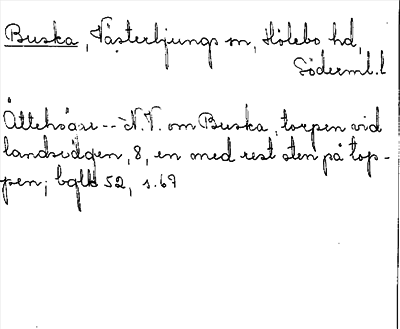 Buska, Västerljungs sn, Hölebo hd,
Söderml. l
Ättehögar -- N.V. om Buska, torpen vid
landsvägen, 8, en med rest sten på top-
pen; bglb 52, s. 67